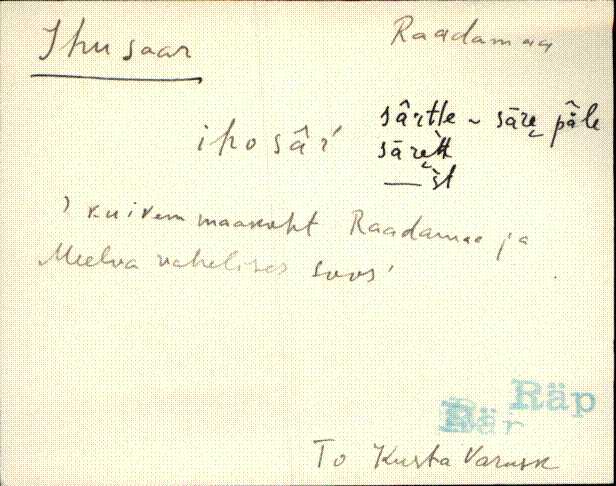 Ihusaar Raadamaa
ihosâŕ sârtle ~ sāre̮ pǟle
sāre̮tt
— st
' kuivem maakoht Raadamaa ja
Meelva vahelises soos'
Räp
Rär
To Kusta Varusk